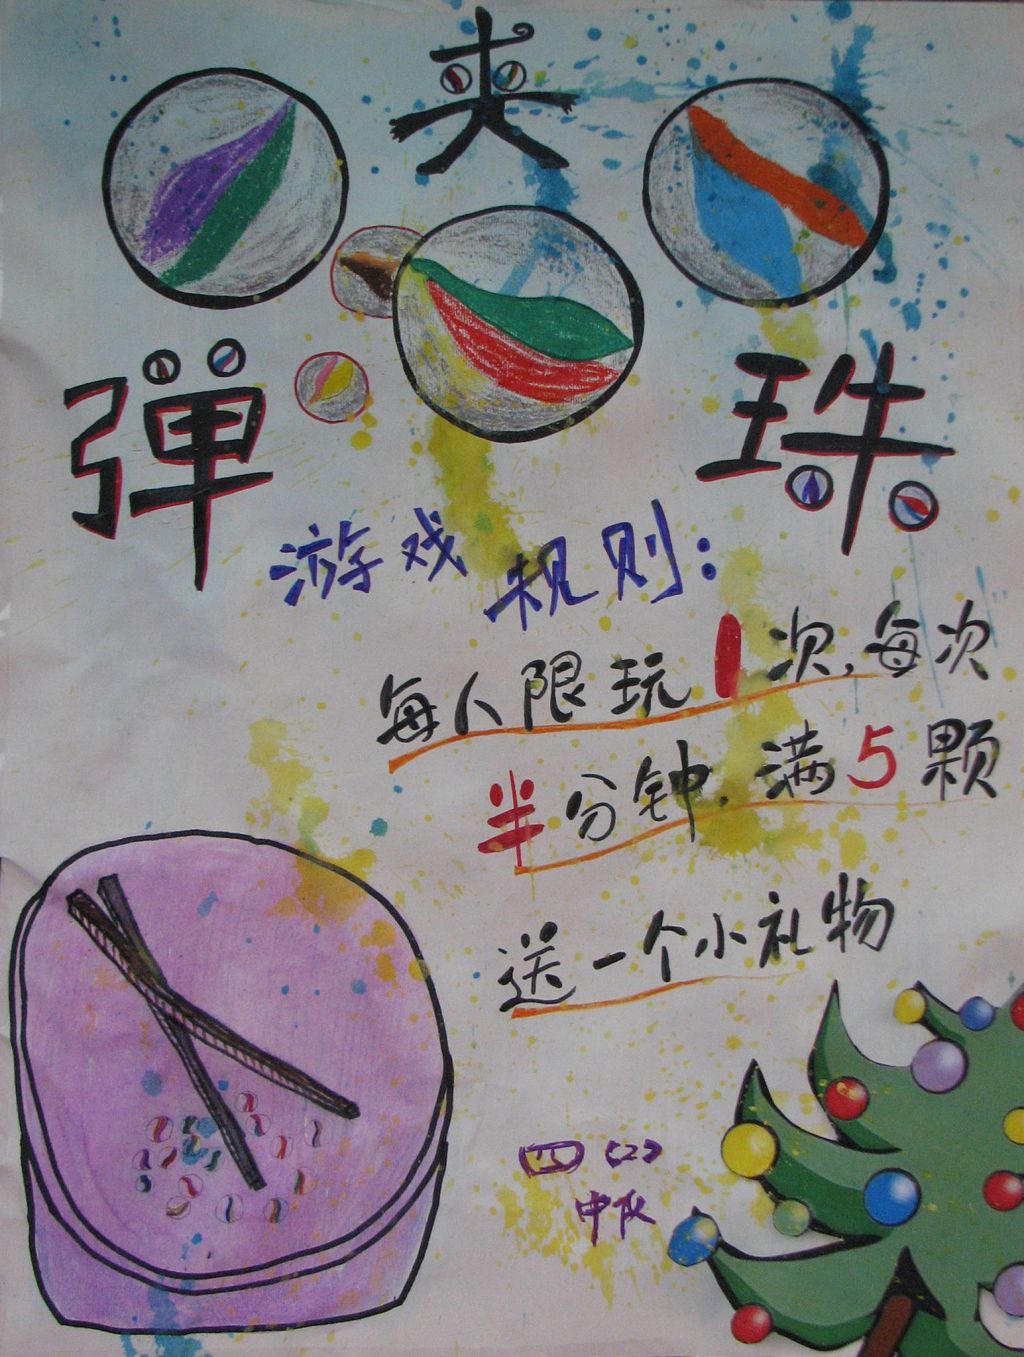 夹
弹珠
游戏规则:
每人限玩1次,每次
半分钟,满5颗
送一个小礼物
四(2)
中队